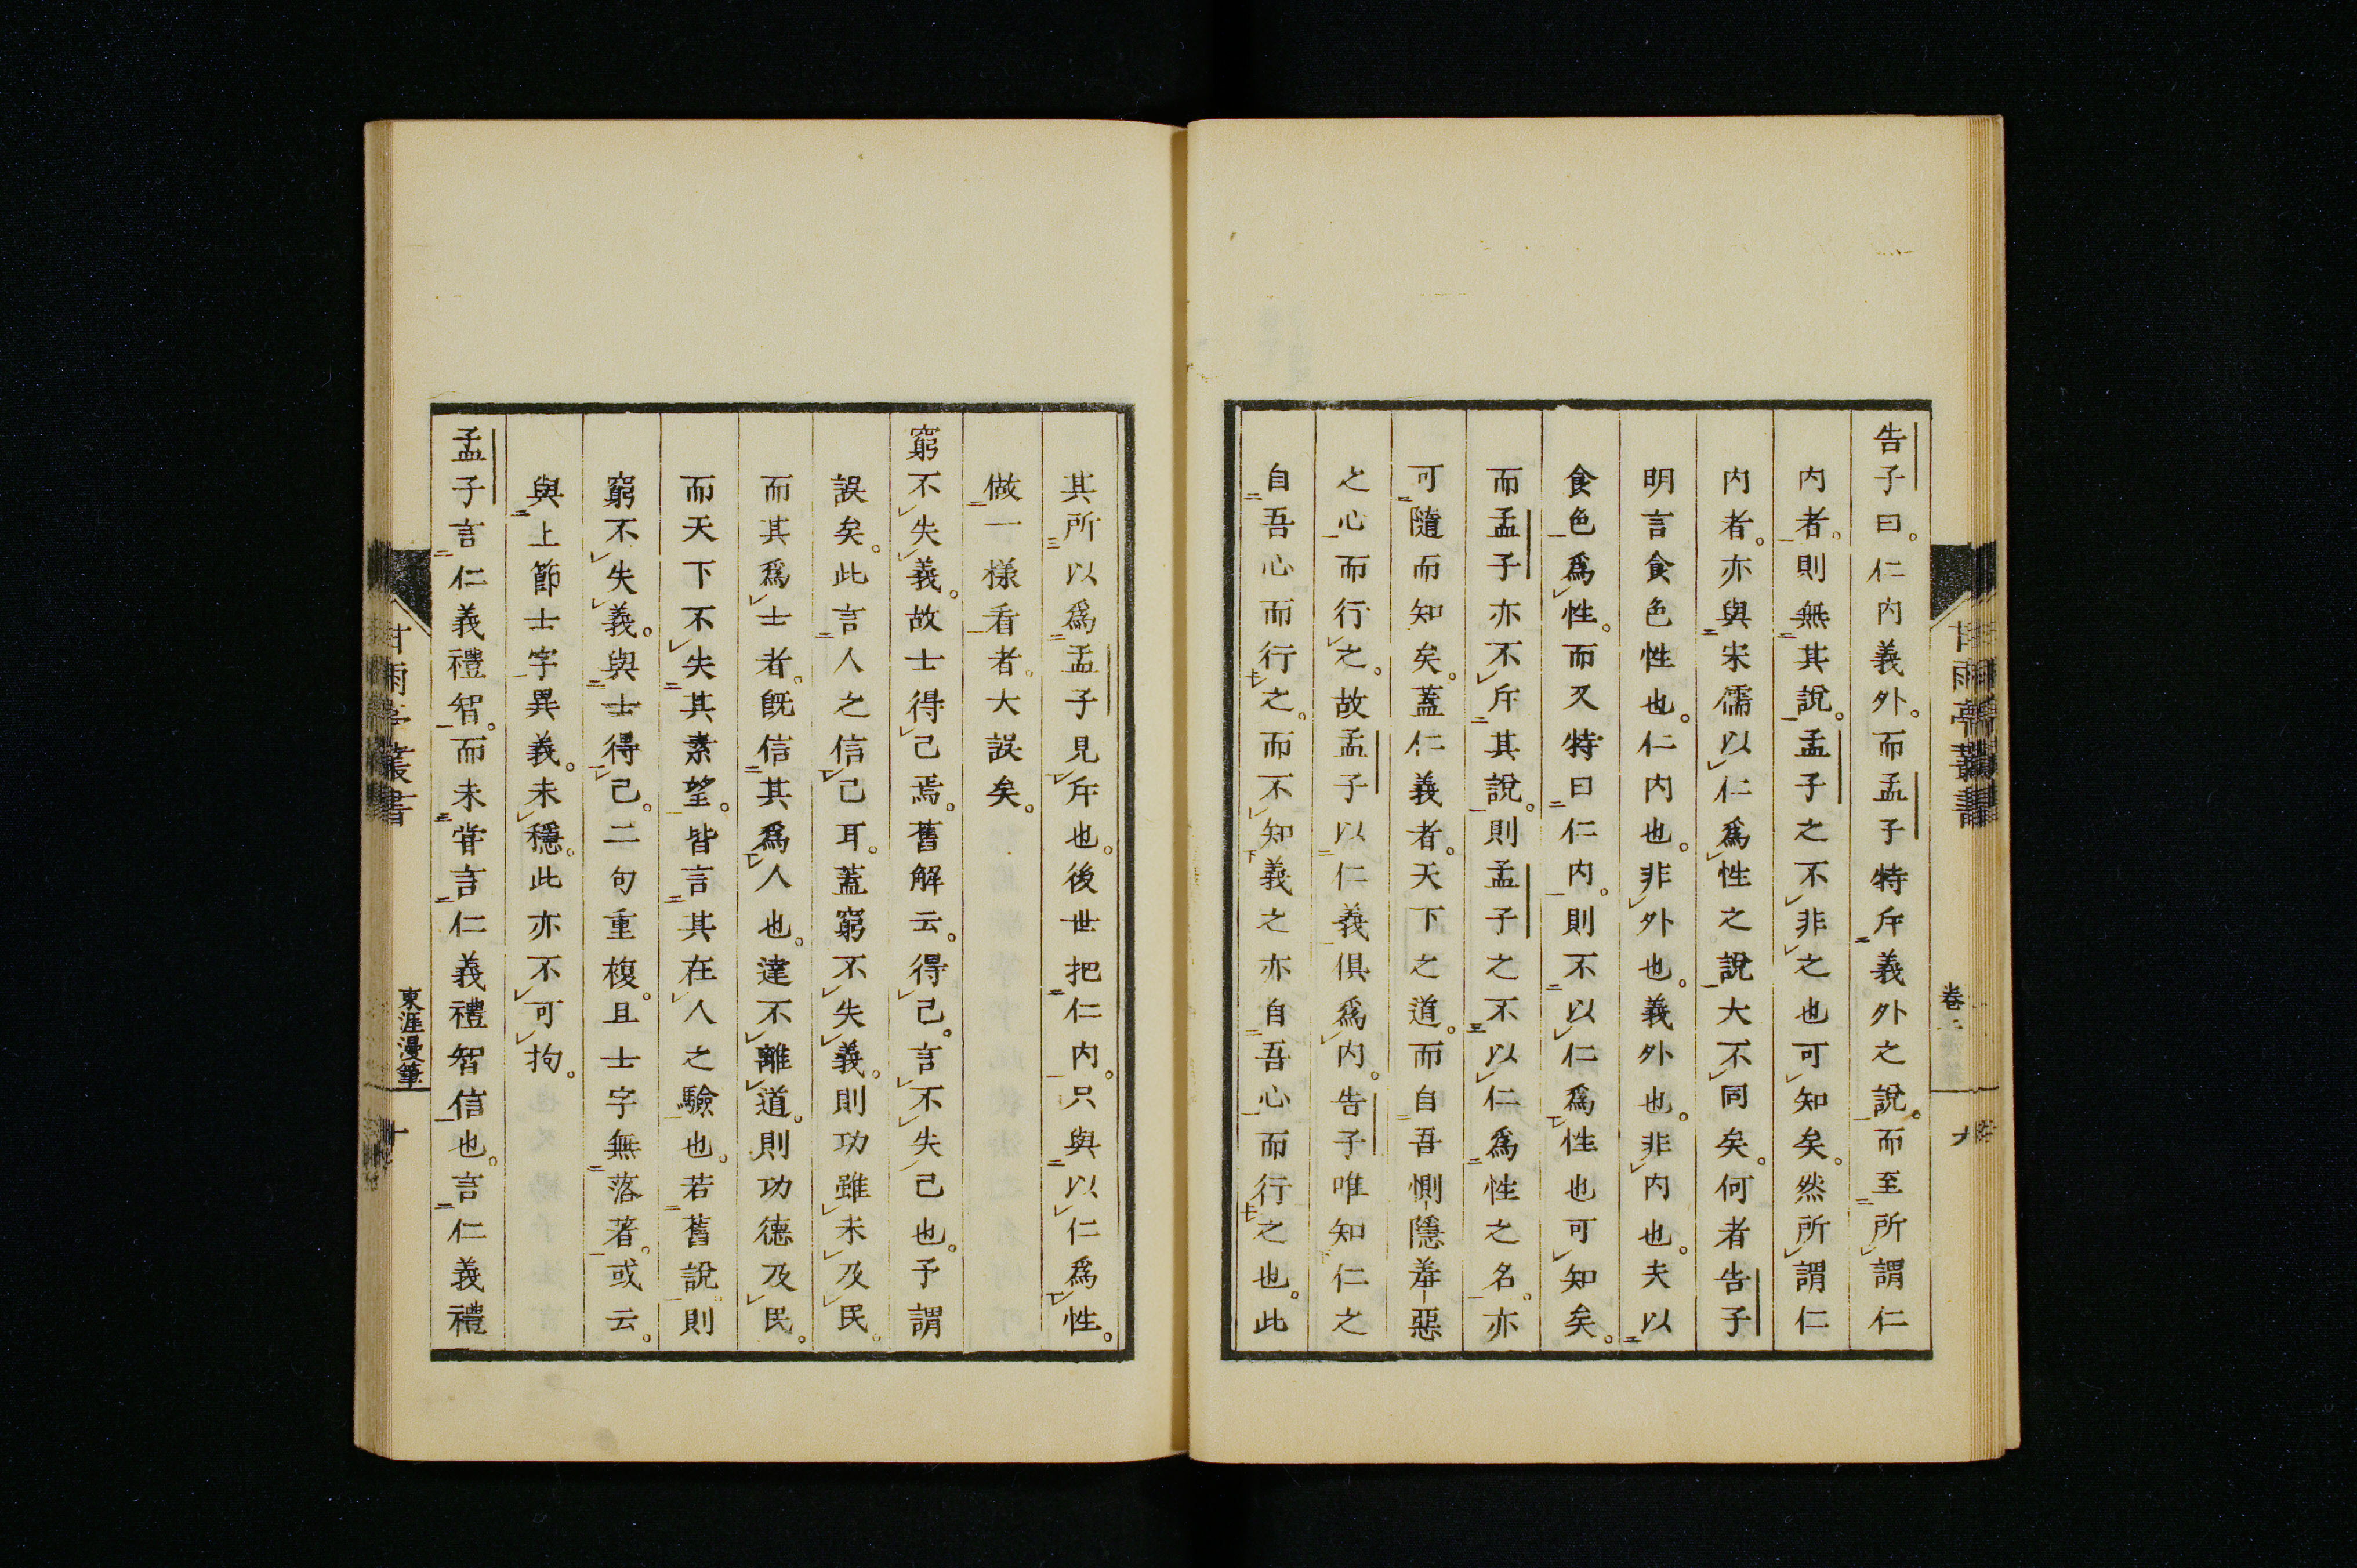 告子曰。仁内義外。而孟子特斥義外之說。而至所謂仁
内者。則無其說。孟子之不非之也可知矣。然所謂仁
内者。亦與宋儒以仁爲性之說大不同矣。何者告子
明言食色性也。仁内也。非外也。義外也。非内也。夫以
食色爲性。而又特曰仁内。則不以仁爲性也可知矣。
而孟子亦不斥其說。則孟子之不以仁爲性之名。亦
可隨而知矣。蓋仁義者。天下之道。而自吾惻隱羞惡
之心而行之。故孟子以仁義俱爲内。告子唯知仁之
自吾心而行之。而不知義之亦自吾心而行之也。此
卷二
九
其所以爲孟子見斥也。後世把仁内。只與以仁爲性。
做一樣看者。大誤矣。
窮不失義。故士得己焉。舊解云。得己。言不失己也。予謂
誤矣。此言人之信己耳。蓋窮不失義。則功雖未及民。
而其爲士者。既信其爲人也。達不離道。則功德及民。
而天下不失其素望。皆言其在人之驗也。若舊說則
窮不失義。與士得己。二句重複。且士字無落著。或云。
與上節士字異義。未穩。此亦不可拘。
孟子言仁義禮智。而未嘗言仁義禮智信也。言仁義禮
甘雨亭叢書
東涯漫筆
十